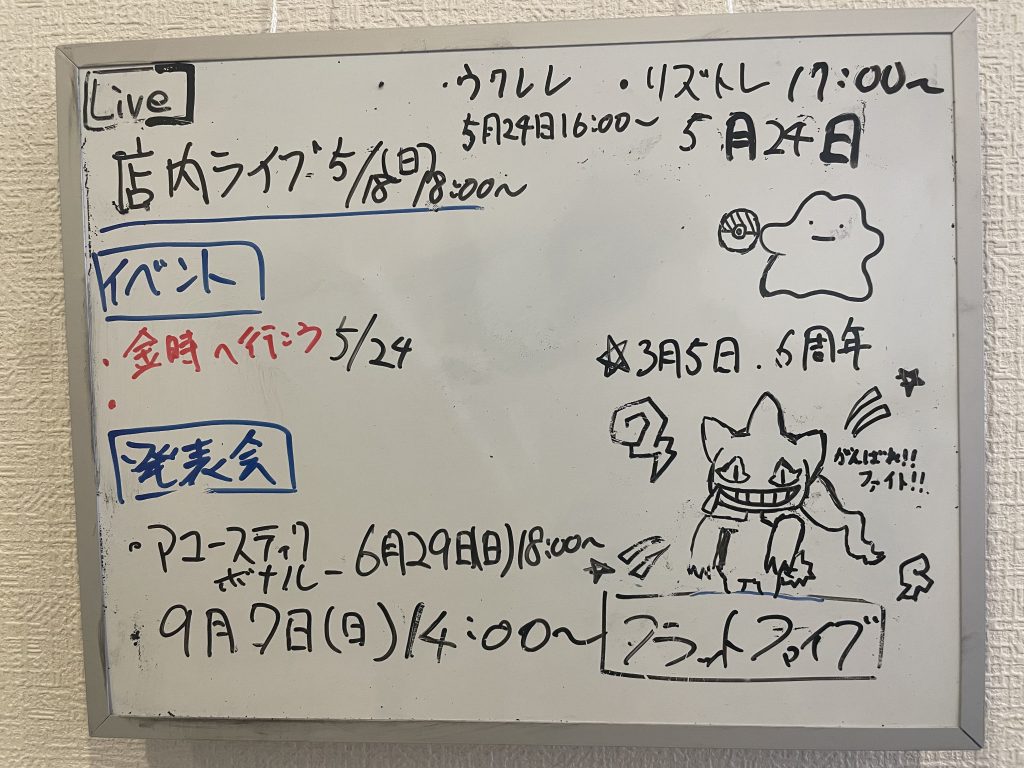 Live
・ウクレレ ・リズトレ 17:00〜
5月24日16:00〜 5月24日
店内ライブ 5/18(日)18:00〜
イベント
・金時へ行こう 5/24
☆3月5日.6周年
発表会
がんばれ!!
ファイト!!
・アコースティック
ボーカル
6月29日(日)18:00〜
9月7日(日)14:00〜
フラットファイブ